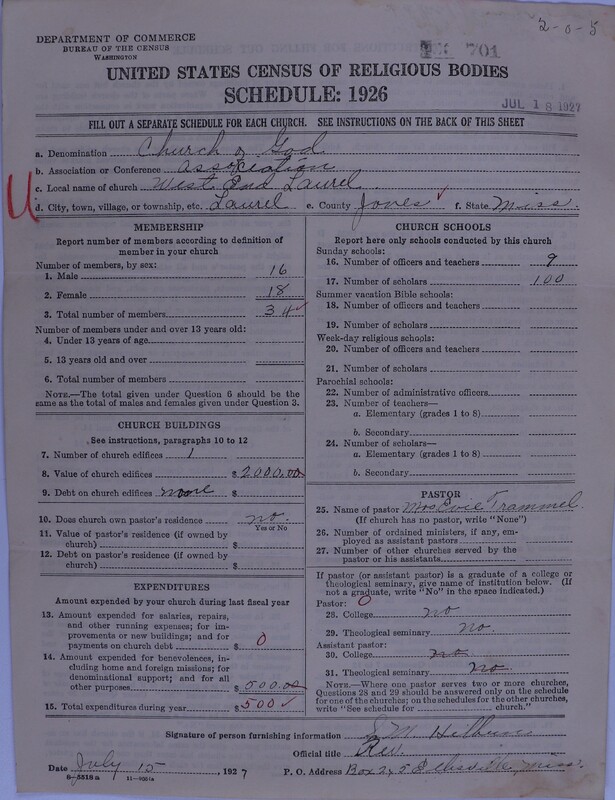 2-0-5
DEPARTMENT OF COMMERCE
BUREAU OF THE CENSUS
WASHINGTON
701
UNITED STATES CENSUS OF RELIGIOUS BODIES
SCHEDULE: 1926
JUL 18 1927
FILL OUT A SEPARATE SCHEDULE FOR EACH CHURCH. SEE INSTRUCTIONS ON THE BACK OF THIS SHEET
a. Denomination Church of God
b. Association or Conference Association
c. Local name of church West End Laurel
d. City, town, village, or township, etc. Laurel e. County Jones f. State Miss.
MEMBERSHIP
Report number of members according to definition of
member in your church
Number of members, by sex:
1. Male 16
2. Female 18
3. Total number of members 34
Number of members under and over 13 years old:
4. Under 13 years of age
5. 13 years old and over
6. Total number of members
NOTE.—The total given under Question 6 should be
the same as the total of males and females given under Question 3.
CHURCH BUILDINGS
See instructions, paragraphs 10 to 12
7. Number of church edifices 1
8. Value of church edifices $ 2000.00
9. Debt on church edifices none $
10. Does church own pastor's residence no.
Yes or No
11. Value of pastor's residence (if owned by
church) $
12. Debt on pastor's residence (if owned by
church) $
EXPENDITURES
Amount expended by your church during last fiscal year
13. Amount expended for salaries, repairs,
and other running expences; for im-
provements or new buildings; and for
payments on church debt $ 0
14. Amount expended for benevolences, in-
cluding home and foreign missions; for
denominational support; and for all
other purposes $ 500.00
15. Total expenditures during year $ 500
CHURCH SCHOOLS
Report here only schools conducted by this church
Sunday schools:
16. Number of officers and teachers 9
17. Number of scholars 100
Summer vacation Bible schools:
18. Number of officers and teachers
19. Number of scholars
Week-day religious schools:
20. Number of officers and teachers
21. Number of scholars
Parochial schools:
22. Number of administrative officers
23. Number of teachers—
a. Elementary (grades 1 to 8)
b. Secondary
24. Number of scholars—
a. Elementary (grades 1 to 8)
b. Secondary
PASTOR
25. Name of pastor Mrs Evie Trammel
(If church has no pastor, write "None")
26. Number of ordained ministers, if any, em-
ployed as assistant pastors
27. Number of other churches served by the
pastor or his assistants
If pastor (or assistant pastor) is a graduate of a college or
theological seminary, give name of institution below. (If
not a graduate, write "No" in the space indicated.)
Pastor: 0
28. College no
29. Theological seminary no.
Assistant pastor:
30. College no
31. Theological seminary No.
NOTE.—Where one pastor serves two or more churches,
Questions 28 and 29 should be answered only on the schedule
for one of the churches; on the schedules for the other churches,
write "See schedule for church."
Signature of person furnishing information S. M. Hilburn
Official title Rev.
Date July 15, 1927 P. O. Address Box 245 Ellisville, Miss.
8-5518a 11-9051a